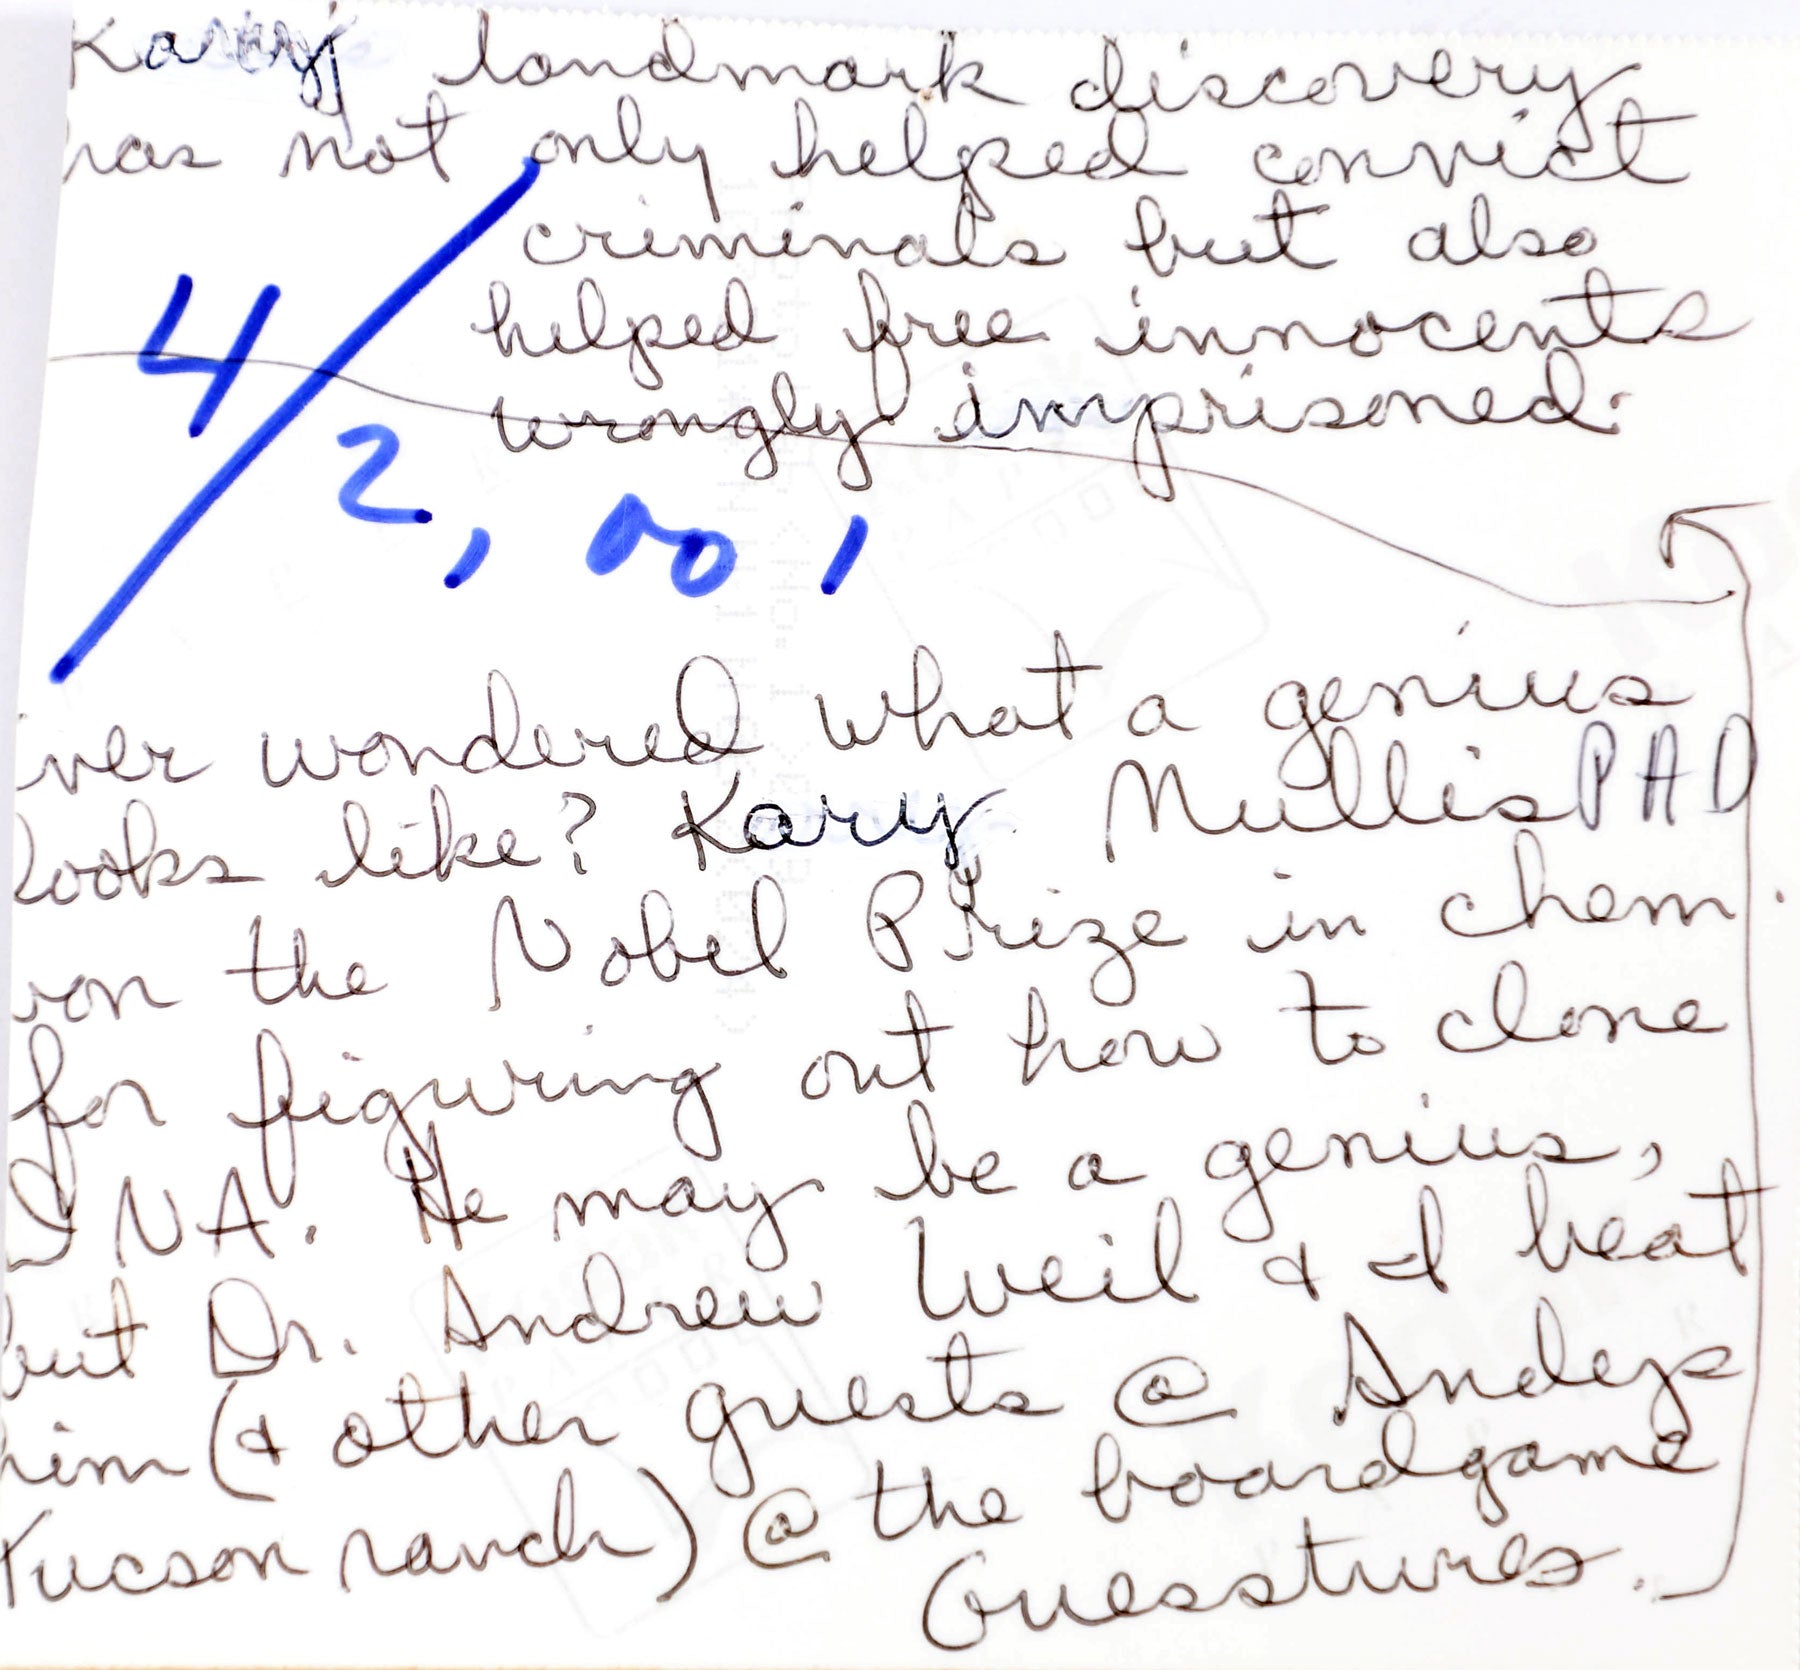 Kary's landmark discovery
has not only helped convict
criminals but also
helped free innocents
wrongly imprisoned.
4/2,001
ever wondered what a genius
looks like? Kary Mullis PHD
won the Nobel Prize in chem.
for figuring out how to clone
DNA. He may be a genius,
but Dr. Andrew Weil & I beat
him (& other guests @ Andys
Tucson ranch) @ the boardgame
Guesstures.